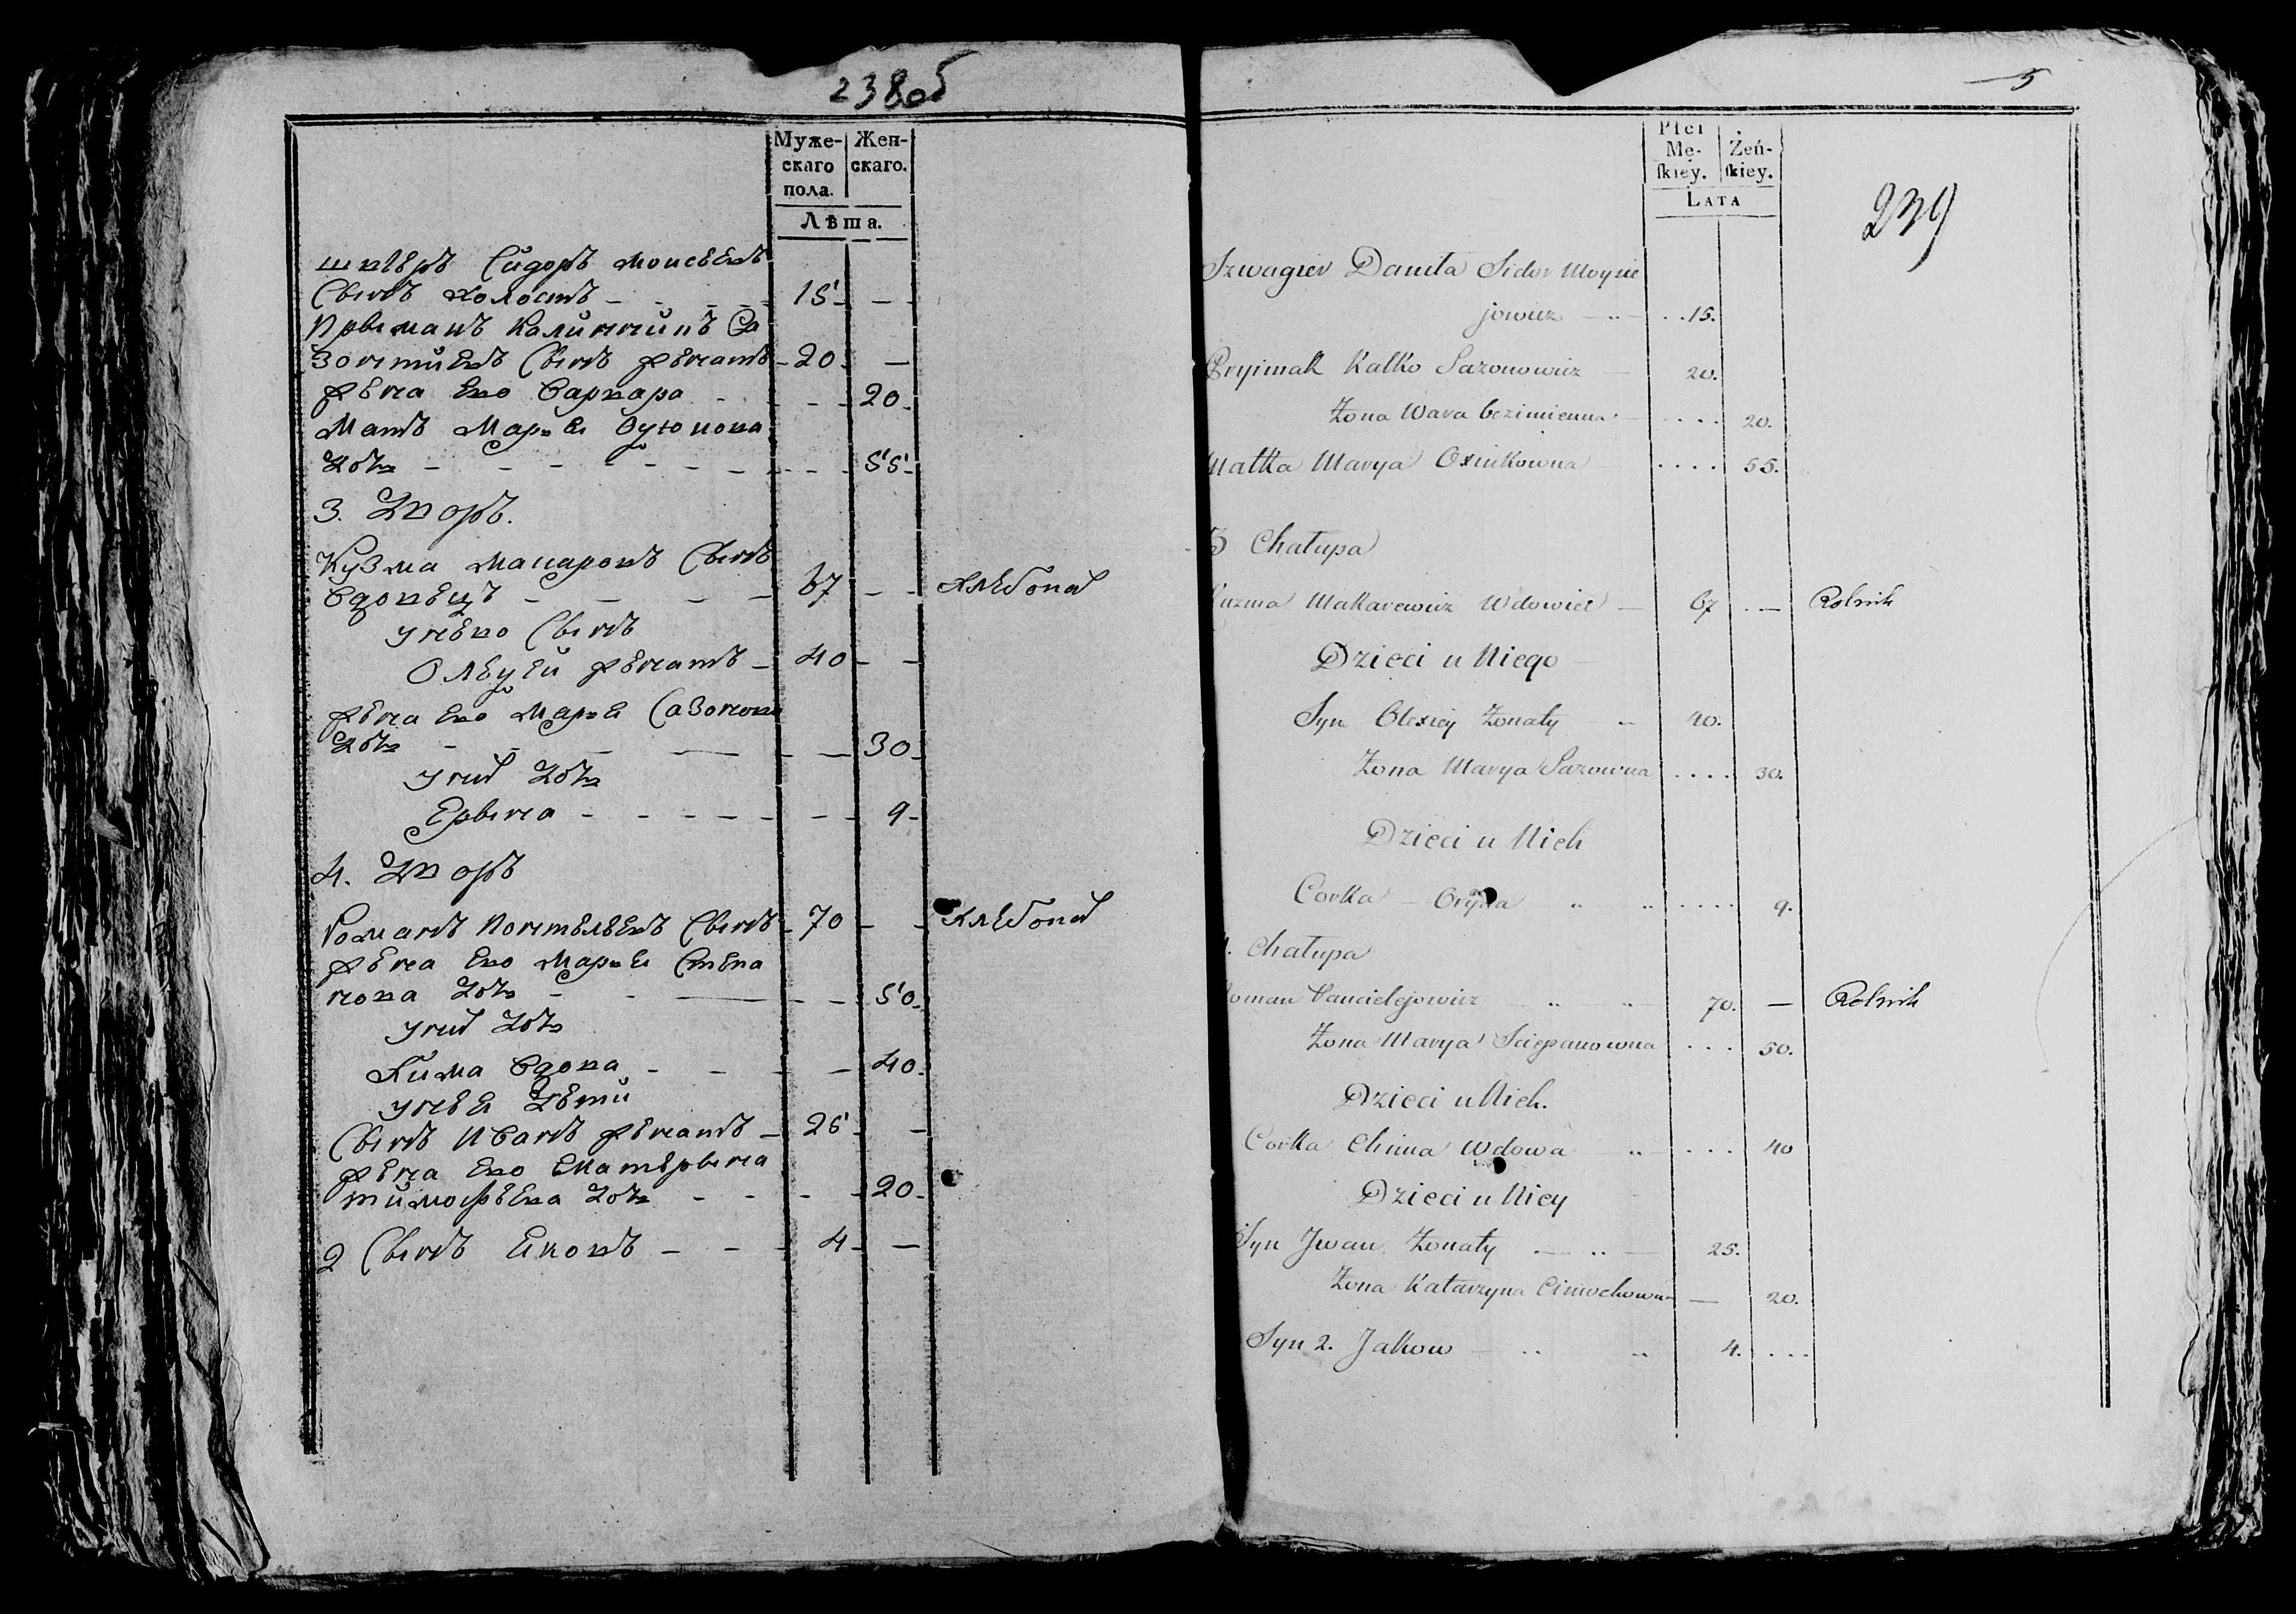 238об
Муже-
скаго
пола.
Жен-
скаго.
Лѣта.
швѣръ Сидоръ Моисѣевъ
Сынъ холостъ 15 —
Прыманъ Калиннинъ Са
зонтиевъ Сынъ женатъ 20 —
жена Ево Варвара 20
Мать Марья
Дочь 55
3. Дворъ.
Кузма Макаровъ Сынъ
Вдовецъ 67 — Хлебопа
у нево Сынъ
Олецей женатъ 40 —
жена Ево Марья Сазонова
Дочь 30
у них Дочь
Ерына 9
4. Дворъ
Романъ Понтелѣевъ Сынъ 70 — Хлебопа
жена Ево Марья Степа
нова Дочь 50
у них Дочь
Хима Вдова 40
у нея Дѣти
Сынъ Иванъ женатъ 25 —
жена Ево Екатерына
тимофѣева Дочь 20
2 Сынъ Яковъ 4 —
5
239
Płci
Mę-
skiey.
Żeń-
skiey.
LATA
Szwagier Daniła Sidor Moysie
jowicz 15.
Pryimak Kalko Sazonowicz 20.
Żona Wara bezimienna 20.
Matka Marya Oxiukowna 55.
3 Chałupa
Kuzma Makarewicz Wdowiec 67 — Rolnik
Dzieci u Niego
Syn Olexiey Żonaty 40.
Żona Marya Sazowna 30.
Dzieci u Nich
Corka Oryna 9.
4. Chałupa
Roman Pancielejowicz 70. — Rolnik
Żona Marya Sciepanowna 50.
Dzieci u Nich.
Corka Chima Wdowa 40
Dzieci u Niey
Syn Jwan Żonaty 25.
Żona Katarzyna Cimochowna — 20.
Syn 2. Jakow 4.